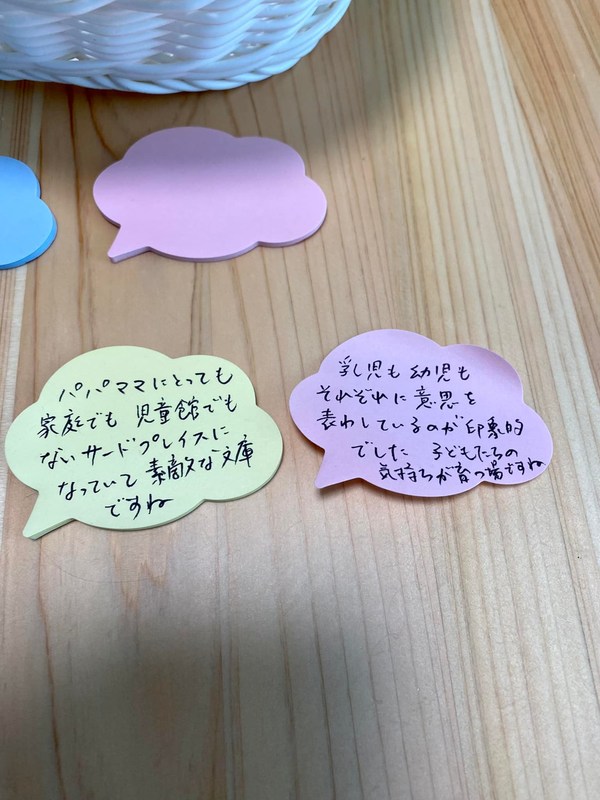 パパママにとっても
家庭でも 児童館でも
ないサードプレイスに
なっていて 素敵な文庫
ですね
乳児も 幼児も
それぞれに 意思を
表わしているのが 印象的
でした 子どもたちの
気持ちが育つ場ですね